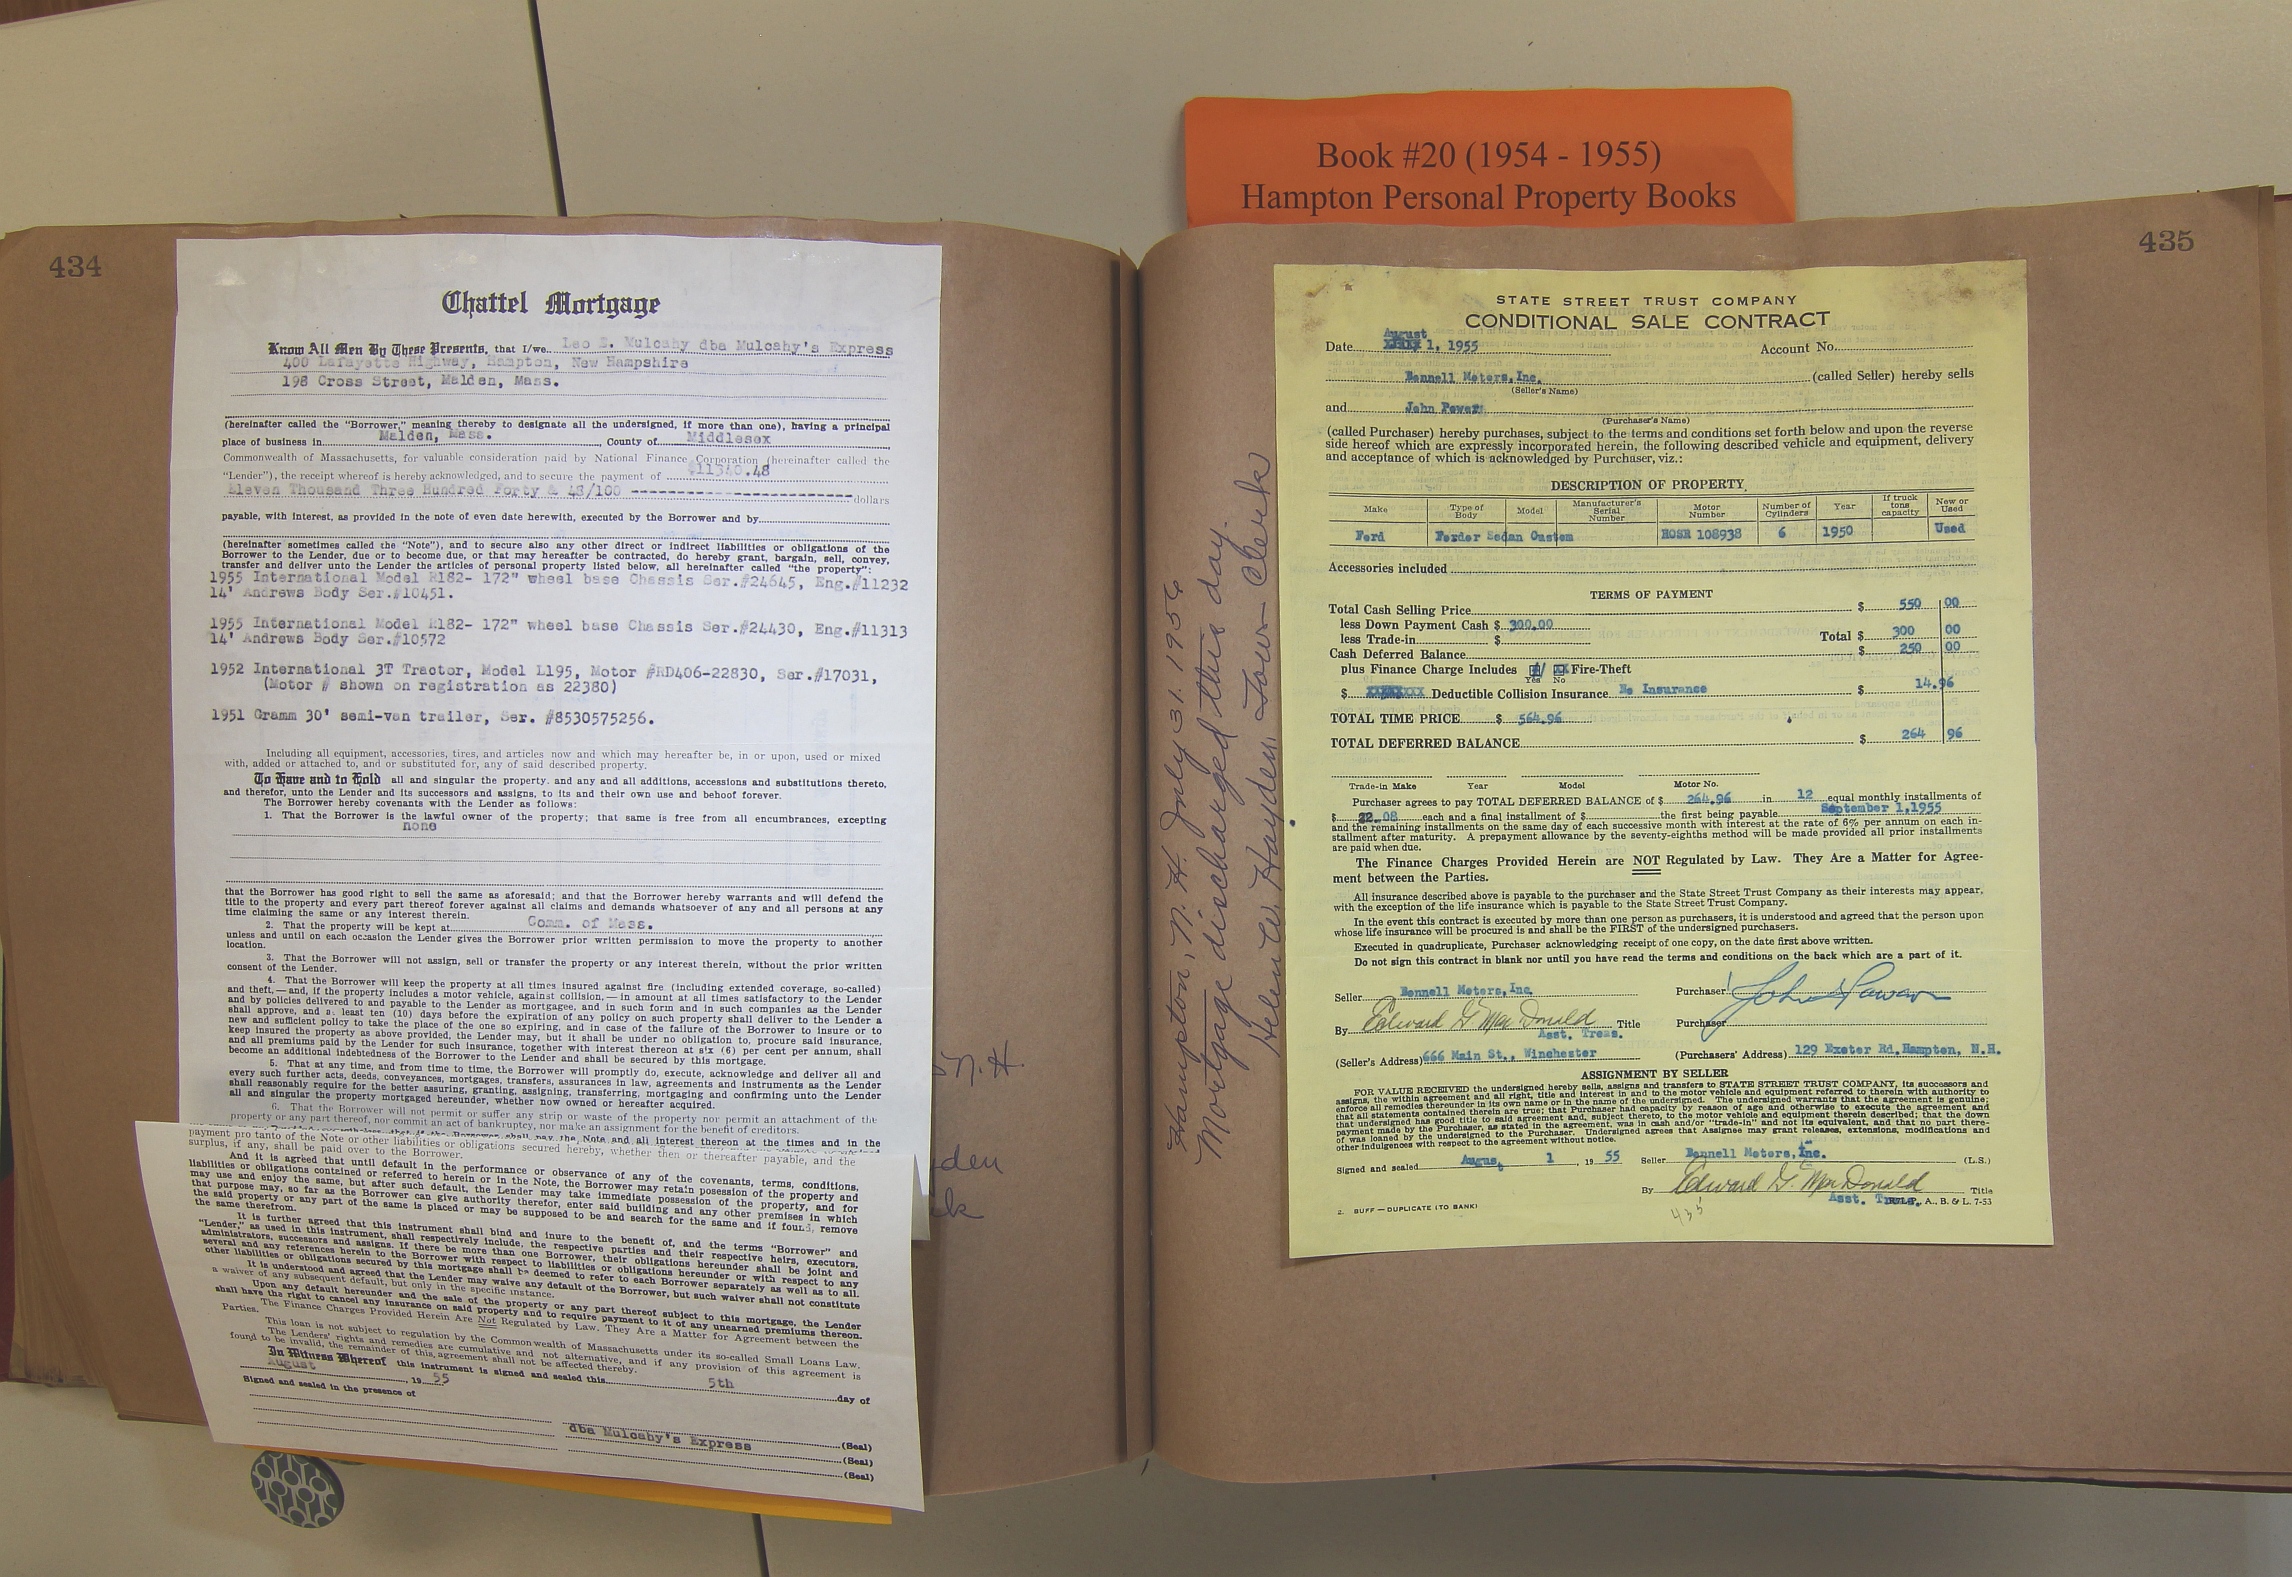 Book #20 (1954 - 1955)
Hampton Personal Property Books
434
Chattel Mortgage
Know All Men By These Presents, that I/we Leo S. Mulcahy dba Mulcahy's Express
400 Lafayette Highway, Hampton, New Hampshire
198 Cross Street, Malden, Mass.
(hereinafter called the "Borrower," meaning thereby to designate all the undersigned, if more than one), having a principal
place of business in Malden, Mass., County of Middlesex
Commonwealth of Massachusetts, for valuable consideration paid by National Finance Corporation (hereinafter called the
"Lender"), the receipt whereof is hereby acknowledged, and to secure the payment of $11340.48
Eleven Thousand Three Hundred Forty & 48/100 -------------------------- dollars
payable, with interest, as provided in the note of even date herewith, executed by the Borrower and by
(hereinafter sometimes called the "Note"), and to secure also any other direct or indirect liabilities or obligations of the
Borrower to the Lender, due or to become due, or that may hereafter be contracted, do hereby grant, bargain, sell, convey,
transfer and deliver unto the Lender the articles of personal property listed below, all hereinafter called "the property":
1955 International Model R182- 172" wheel base Chassis Ser.#24645, Eng.#11232
14' Andrews Body Ser.#10451.
1955 International Model R182- 172" wheel base Chassis Ser.#24430, Eng.#11313
14' Andrews Body Ser.#10572
1952 International 3T Tractor, Model L195, Motor #RD406-22830, Ser.#17031,
(Motor # shown on registration as 22380)
1951 Gramm 30' semi-van trailer, Ser. #8530575256.
Including all equipment, accessories, tires, and articles now and which may hereafter be, in or upon, used or mixed
with, added or attached to, and or substituted for, any of said described property.
To Have and to Hold all and singular the property. and any and all additions, accessions and substitutions thereto,
and therefor, unto the Lender and its successors and assigns, to its and their own use and behoof forever.
The Borrower hereby covenants with the Lender as follows:
1. That the Borrower is the lawful owner of the property; that same is free from all encumbrances, excepting
none
that the Borrower has good right to sell the same as aforesaid; and that the Borrower hereby warrants and will defend the
title to the property and every part thereof forever against all claims and demands whatsoever of any and all persons at any
time claiming the same or any interest therein.
2. That the property will be kept at Comm. of Mass.
unless and until on each occasion the Lender gives the Borrower prior written permission to move the property to another
location.
3. That the Borrower will not assign, sell or transfer the property or any interest therein, without the prior written
consent of the Lender.
4. That the Borrower will keep the property at all times insured against fire (including extended coverage, so-called)
and theft,—and, if the property includes a motor vehicle, against collision,—in amount at all times satisfactory to the Lender
and by policies delivered to and payable to the Lender as mortgagee, and in such form and in such companies as the Lender
shall approve, and at least ten (10) days before the expiration of any policy on such property shall deliver to the Lender a
new and sufficient policy to take the place of the one so expiring, and in case of the failure of the Borrower to insure or to
keep insured the property as above provided, the Lender may, but it shall be under no obligation to, procure said insurance,
and all premiums paid by the Lender for such insurance, together with interest thereon at six (6) per cent per annum, shall
become an additional indebtedness of the Borrower to the Lender and shall be secured by this mortgage.
5. That at any time, and from time to time, the Borrower will promptly do, execute, acknowledge and deliver all and
every such further acts, deeds, conveyances, mortgages, transfers, assurances in law, agreements and instruments as the Lender
shall reasonably require for the better assuring, granting, assigning, transferring, mortgaging and confirming unto the Lender
all and singular the property mortgaged hereunder, whether now owned or hereafter acquired.
6. That the Borrower will not permit or suffer any strip or waste of the property nor permit an attachment of the
property or any part thereof, nor commit an act of bankruptcy, nor make an assignment for the benefit of creditors.
shall pay the Note and all interest thereon at the times and in the
payment pro tanto of the Note or other liabilities or obligations secured hereby, whether then or thereafter payable, and the
surplus, if any, shall be paid over to the Borrower.
And it is agreed that until default in the performance or observance of any of the covenants, terms, conditions,
liabilities or obligations contained or referred to herein or in the Note, the Borrower may retain posession of the property and
may use and enjoy the same, but after such default, the Lender may take immediate possession of the property, and for
that purpose may, so far as the Borrower can give authority therefor, enter said building and any other premises in which
the said property or any part of the same is placed or may be supposed to be and search for the same and if found, remove
the same therefrom.
It is further agreed that this instrument shall bind and inure to the benefit of, and the terms "Borrower" and
"Lender," as used in this instrument, shall respectively include, the respective parties and their respective heirs, executors,
administrators, successors and assigns. If there be more than one Borrower, their obligations hereunder shall be joint and
several and any references herein to the Borrower with respect to liabilities or obligations hereunder or with respect to any
other liabilities or obligations secured by this mortgage shall be deemed to refer to each Borrower separately as well as to all.
It is understood and agreed that the Lender may waive any default of the Borrower, but such waiver shall not constitute
a waiver of any subsequent default, but only in the specific instance.
Upon any default hereunder and the sale of the property or any part thereof subject to this mortgage, the Lender
shall have the right to cancel any insurance on said property and to require payment to it of any unearned premiums thereon.
The Finance Charges Provided Herein Are Not Regulated by Law. They Are a Matter for Agreement between the
Parties.
This loan is not subject to regulation by the Commonwealth of Massachusetts under its so-called Small Loans Law.
The Lenders' rights and remedies are cumulative and not alternative, and if any provision of this agreement is
found to be invalid, the remainder of this agreement shall not be affected thereby.
In Witness Whereof this instrument is signed and sealed this 5th day of
August, 19 55
Signed and sealed in the presence of
(Seal)
dba Mulcahy's Express
(Seal)
(Seal)
N.H.
den
k
Hampton, N. H. July 31. 1956
Mortgage discharged this day.
Helen W. Hayden. Town Clerk
435
STATE STREET TRUST COMPANY
CONDITIONAL SALE CONTRACT
August
Date 1, 1955 Account No.
Bennell Motors, Inc. (called Seller) hereby sells
(Seller's Name)
and John Power
(Purchaser's Name)
(called Purchaser) hereby purchases, subject to the terms and conditions set forth below and upon the reverse
side hereof which are expressly incorporated herein, the following described vehicle and equipment, delivery
and acceptance of which is acknowledged by Purchaser, viz.:
DESCRIPTION OF PROPERTY
Make Type of Body Model Manufacturer's Serial Number Motor Number Number of Cylinders Year If truck tons capacity New or Used
Ford Fordor Sedan Custom HOSR 108938 6 1950 Used
Accessories included
TERMS OF PAYMENT
Total Cash Selling Price $ 550 00
less Down Payment Cash $ 300.00
less Trade-in $ Total $ 300 00
Cash Deferred Balance $ 250 00
plus Finance Charge Includes Yes No Fire-Theft
$ XXXXXXX Deductible Collision Insurance No Insurance $ 14.96
TOTAL TIME PRICE $ 564.96
TOTAL DEFERRED BALANCE $ 264 96
Trade-in Make Year Model Motor No.
Purchaser agrees to pay TOTAL DEFERRED BALANCE of $ 264.96 in 12 equal monthly installments of
$ 22.08 each and a final installment of $ the first being payable September 1,1955
and the remaining installments on the same day of each successive month with interest at the rate of 6% per annum on each in-
stallment after maturity. A prepayment allowance by the seventy-eighths method will be made provided all prior installments
are paid when due.
The Finance Charges Provided Herein are NOT Regulated by Law. They Are a Matter for Agree-
ment between the Parties.
All insurance described above is payable to the purchaser and the State Street Trust Company as their interests may appear,
with the exception of the life insurance which is payable to the State Street Trust Company.
In the event this contract is executed by more than one person as purchasers, it is understood and agreed that the person upon
whose life insurance will be procured is and shall be the FIRST of the undersigned purchasers.
Executed in quadruplicate, Purchaser acknowledging receipt of one copy, on the date first above written.
Do not sign this contract in blank nor until you have read the terms and conditions on the back which are a part of it.
Seller Bennell Motors, Inc. Purchaser
By Edward G MacDonald Title Purchaser
Asst. Treas.
(Seller's Address) 666 Main St., Winchester (Purchasers' Address) 129 Exeter Rd, Hampton, N.H.
ASSIGNMENT BY SELLER
FOR VALUE RECEIVED the undersigned hereby sells, assigns and transfers to STATE STREET TRUST COMPANY, its successors and
assigns, the within agreement and all right, title and interest in and to the motor vehicle and equipment referred to therein with authority to
enforce all remedies thereunder in its own name or in the name of the undersigned. The undersigned warrants that the agreement is genuine;
that all statements contained therein are true; that Purchaser had capacity by reason of age and otherwise to execute the agreement and
that undersigned has good title to said agreement and, subject thereto, to the motor vehicle and equipment therein described; that the down
payment made by the Purchaser, as stated in the agreement, was in cash and/or "trade-in" and not its equivalent, and that no part there-
of was loaned by the undersigned to the Purchaser. Undersigned agrees that Assignee may grant releases, extensions, modifications and
other indulgences with respect to the agreement without notice.
Signed and sealed August 1, 19 55 Seller Bennell Motors, Inc. (L.S.)
By Edward G. MacDonald Title
Asst. Treas. A., B. & L. 7-53
2. BUFF—DUPLICATE (TO BANK)
435